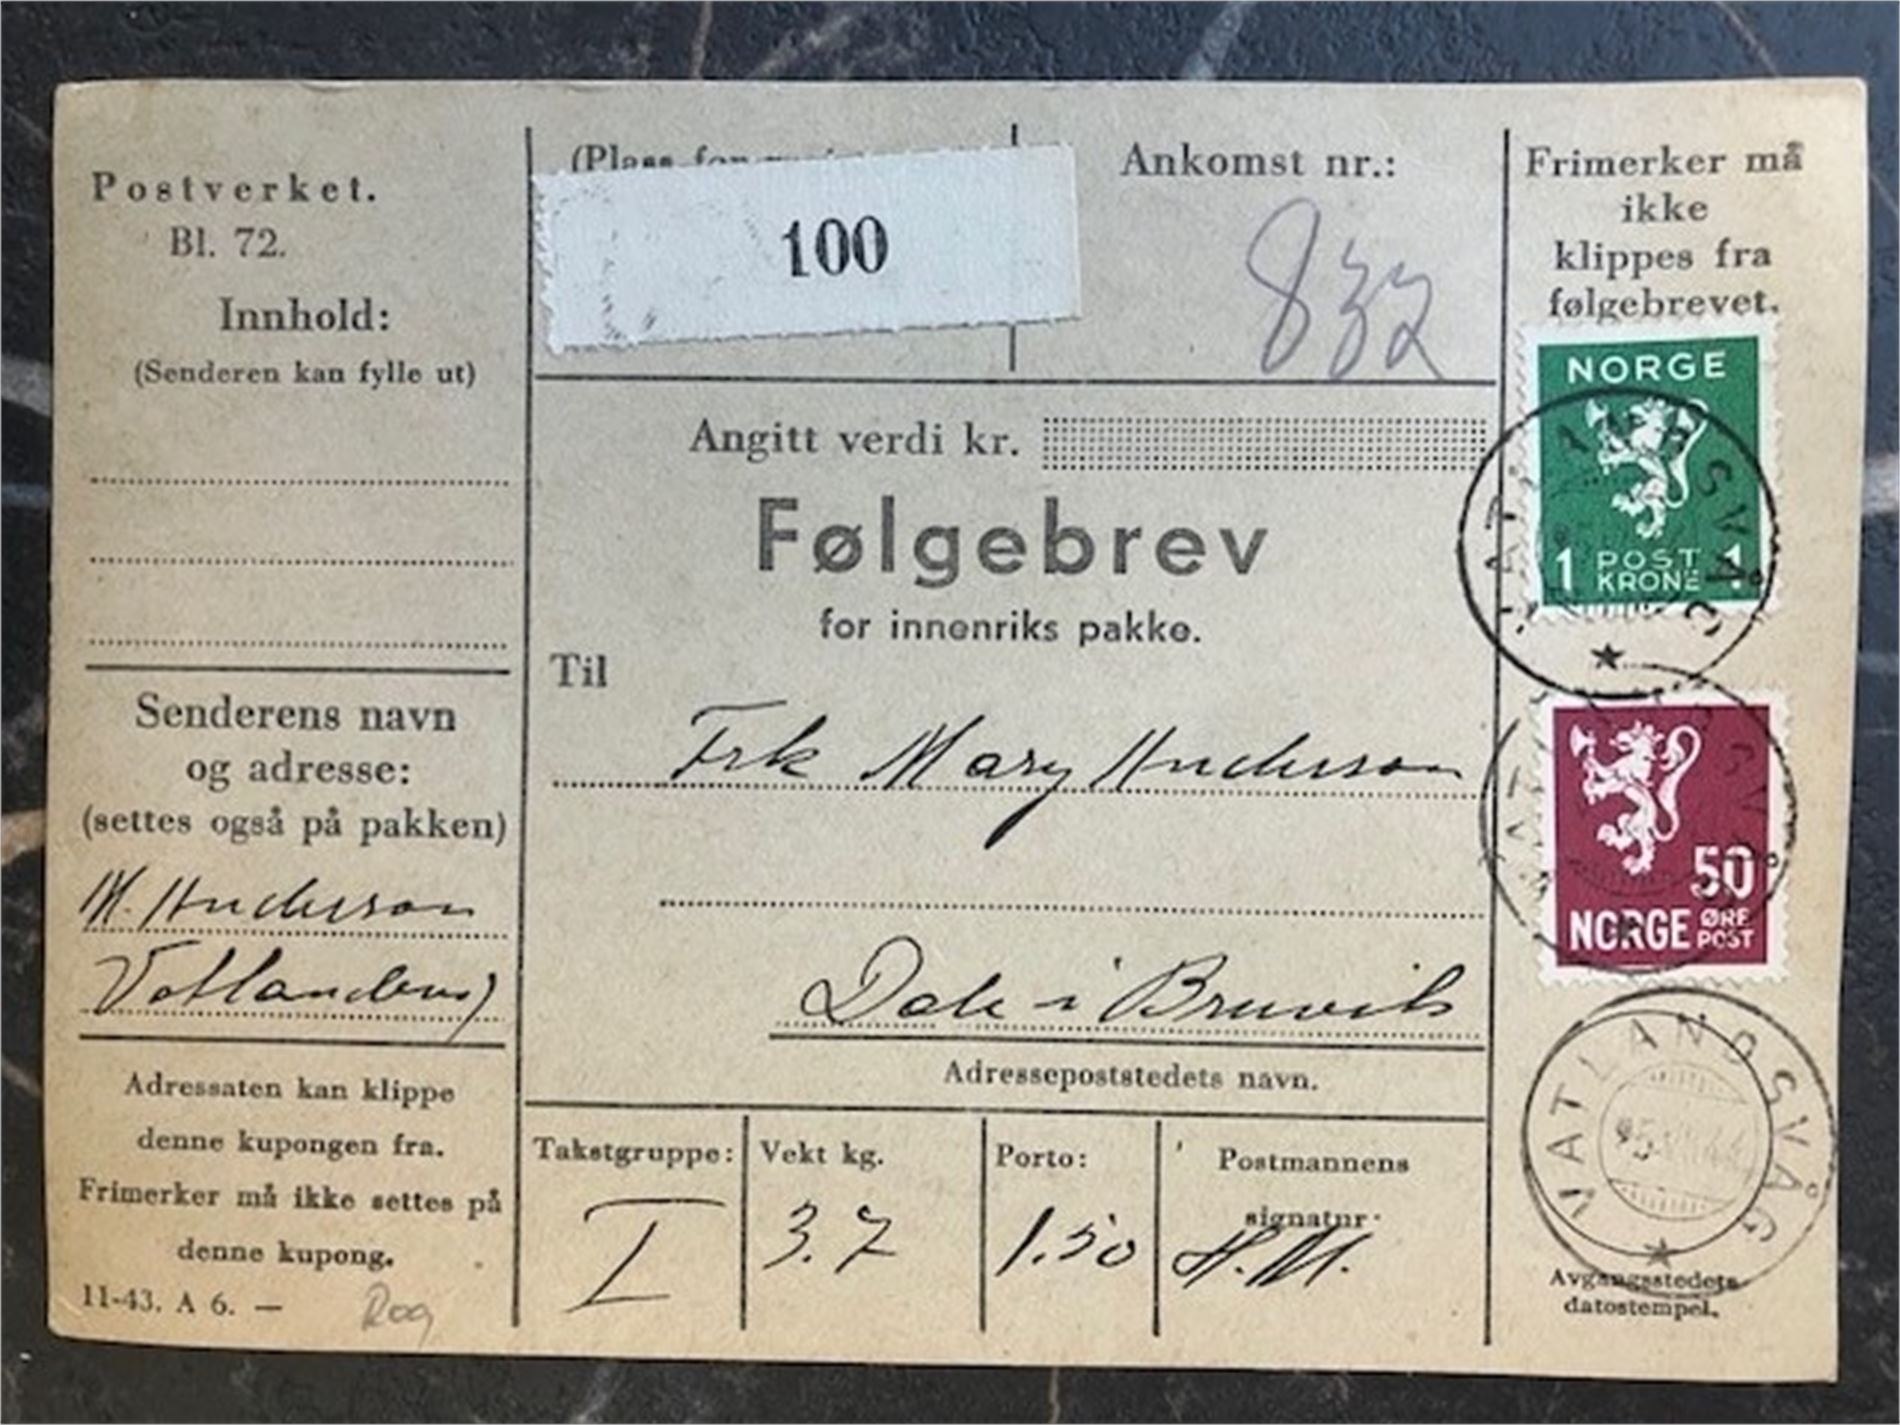 Postverket.
Bl. 72.
Innhold:
(Senderen kan fylle ut)
Senderens navn
og adresse:
(settes også på pakken)
M. Anderson
Adressaten kan klippe
denne kupongen fra.
Frimerker må ikke settes på
denne kupong.
11-43. A 6. —
Rog
(Plass for
100
Ankomst nr.:
832
Angitt verdi kr.
Følgebrev
for innenriks pakke.
Til
Frk Mary Anderson
Dale i Bruvik
Adressepoststedets navn.
Takstgruppe:
I
Vekt kg.
3.7
Porto:
1.50
Postmannens
signatur.
H.M.
Frimerker må
ikke
klippes fra
følgebrevet.
NORGE
1 POST 1
KRONE
50
NORGE ØRE
POST
VATLANDSVÅG
Avgangsstedets
datostempel.